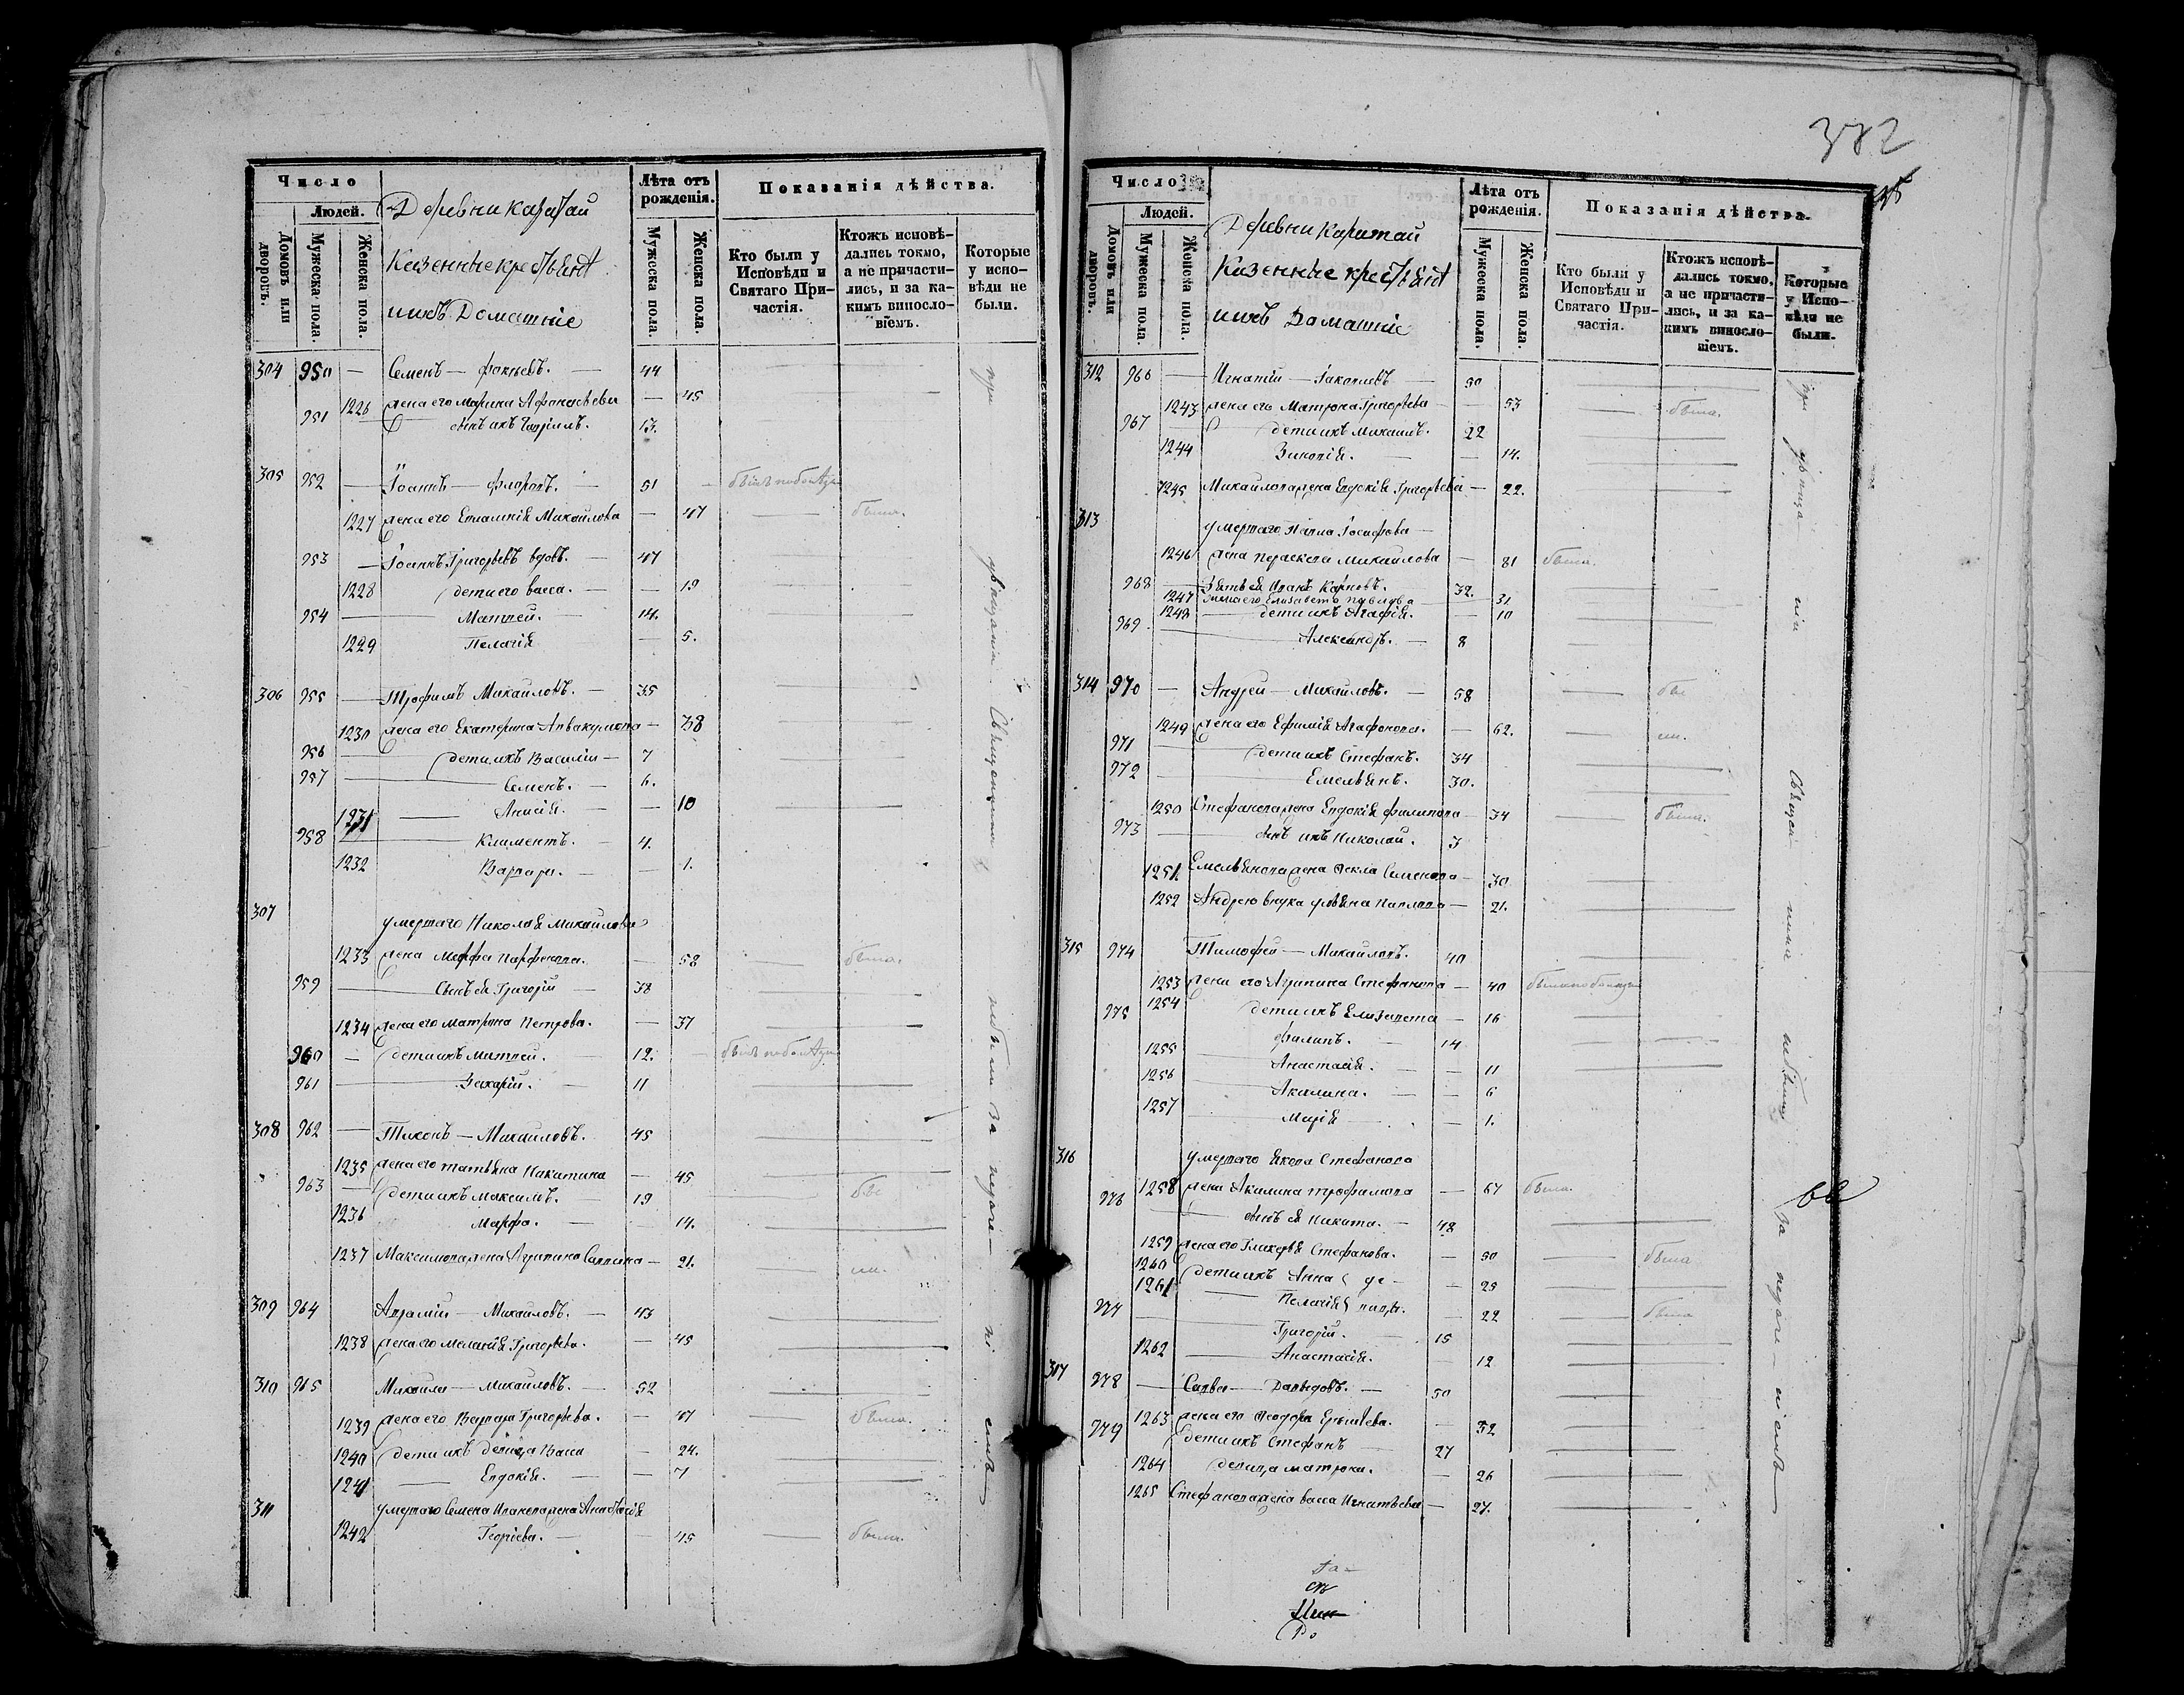 Число
Людей.
Домовъ или дворовъ.
Мужеска пола.
Женска пола.
Деревни Каратай
Казенные крестьяне
и ихъ Домашние
Лѣта отъ рожденія.
Мужеска пола.
Женска пола.
Показанія дѣйства.
Кто были у Исповѣди и Святаго Причастія.
Ктожъ исповѣдались токмо, а не причастились, и за какимъ винословіемъ.
Которые у исповѣди не были.
304 950 — Семенъ — — 44
1226 жена его Марина — 45
951 сынъ ихъ 13.
305 952 — Іоаннъ — Флоровъ. — 51
1227 жена его Михайлова — 47 была.
953 — Іоаннъ Григорьевъ вдовъ. — 47
1228 дети его Васса. — — 19
954 — Матвей. — 14.
1229 Пелагія — 5.
306 955 — Трофимъ Михайловъ. — 35
1230 жена его Екатерина Аввакумова — 38
956 — дети ихъ Василій — 7
957 — Семенъ. — 6.
1231 — Анисія. — — 10
958 — Климентъ. — 4.
1232 Варвара. — — 1.
307 умершаго Николая Михайлова
1233 жена Марфа Парфенова. — 58 была.
959 — Сынъ ея Григорій — 38
1234 жена его Матрона Петрова. — 37
960 — дети ихъ Матвей. — 12.
961 — Захарій. — 11
308 962 — Тихонъ — Михайловъ. 45
1235 жена его Татьяна Никитина — 45
963 — дети ихъ Максимъ. — 19
1236 Марфа. — — 14.
1237 Максимова жена Агрипина Саввина — 21.
309 964 Авраамій — Михайловъ. — 43
1238 жена его Меланія Григорьева. — 45
310 965 Михаилъ — Михайловъ. — 52
1239 жена его Варвара Григорьева. — 47 была.
1240 дети ихъ девица Васса — 24.
1241 — Евдокія. — — 7
311 умершаго Семена Иванова жена Анастасія
1242 Георгіева. — 45 была.
382
Число
Людей.
Домовъ или дворовъ.
Мужеска пола.
Женска пола.
Деревни Каратай
Казенные крестьяне
и ихъ Домашние
Лѣта отъ рожденія.
Мужеска пола.
Женска пола.
Показанія дѣйства.
Кто были у Исповѣди и Святаго Причастія.
Ктожъ исповѣдались токмо, а не причастились, и за какимъ винословіемъ.
Которые у Исповѣди не были.
312 966 — Игнатій — Іаковлевъ — 50
1243 жена его Матрона Григорьева — 53 была.
967 — дети ихъ Михаилъ. 22
1244 Зиновія. — — 14.
1245 Михайлова жена Евдокія Григорьева — 22.
313 умершаго Іосифова —
1246 жена Параскева Михайлова — 81 была.
968 — Зять ея Иванъ Карповъ. 32.
1247 жена его Елизавета — 31
1248 — дети ихъ Агафія. — 10
969 — Александръ. — 8
314 970 — Андрей — Михайловъ. — 58
1249 жена его Ефимія Агафонова. — 62.
971 — дети ихъ Стефанъ. 34
972 — Емельянъ. 30.
1250 Стефанова жена Евдокія Филипова — 34 была.
973 — сынъ ихъ Николай. 3
1251 Емельянова жена Фекла Семенова — 30
1252 Андрею внука Ульяна Павлова — 21.
315 974 Тимофей — Михайловъ. 40
1253 жена его Агрипина Стефанова — 40
1254 дети ихъ Елизавета — 16
975 Филипъ. — 14
1255 Анастасія. — — 11
1256 — Акилина. — — 6
1257 — Марія — — 1.
316 умершаго Якова Стефанова
1258 жена Акилина Трофимова — 67 была.
976 — сынъ ея Никита. — 48
1259 жена его Гликерія Стефанова. — 50 была
1260 дети ихъ Анна — 25
1261 — Пелагія — 22 была
977 — Григорій. — 15
1262 — Анастасія. — 12
317 978 — Савва — Давыдовъ. — 50
1263 жена его Феодора — 52
979 дети ихъ Стефанъ — 27
1264 девица Матрона. — 26
1265 Стефанова жена Васса Игнатьева — 27.